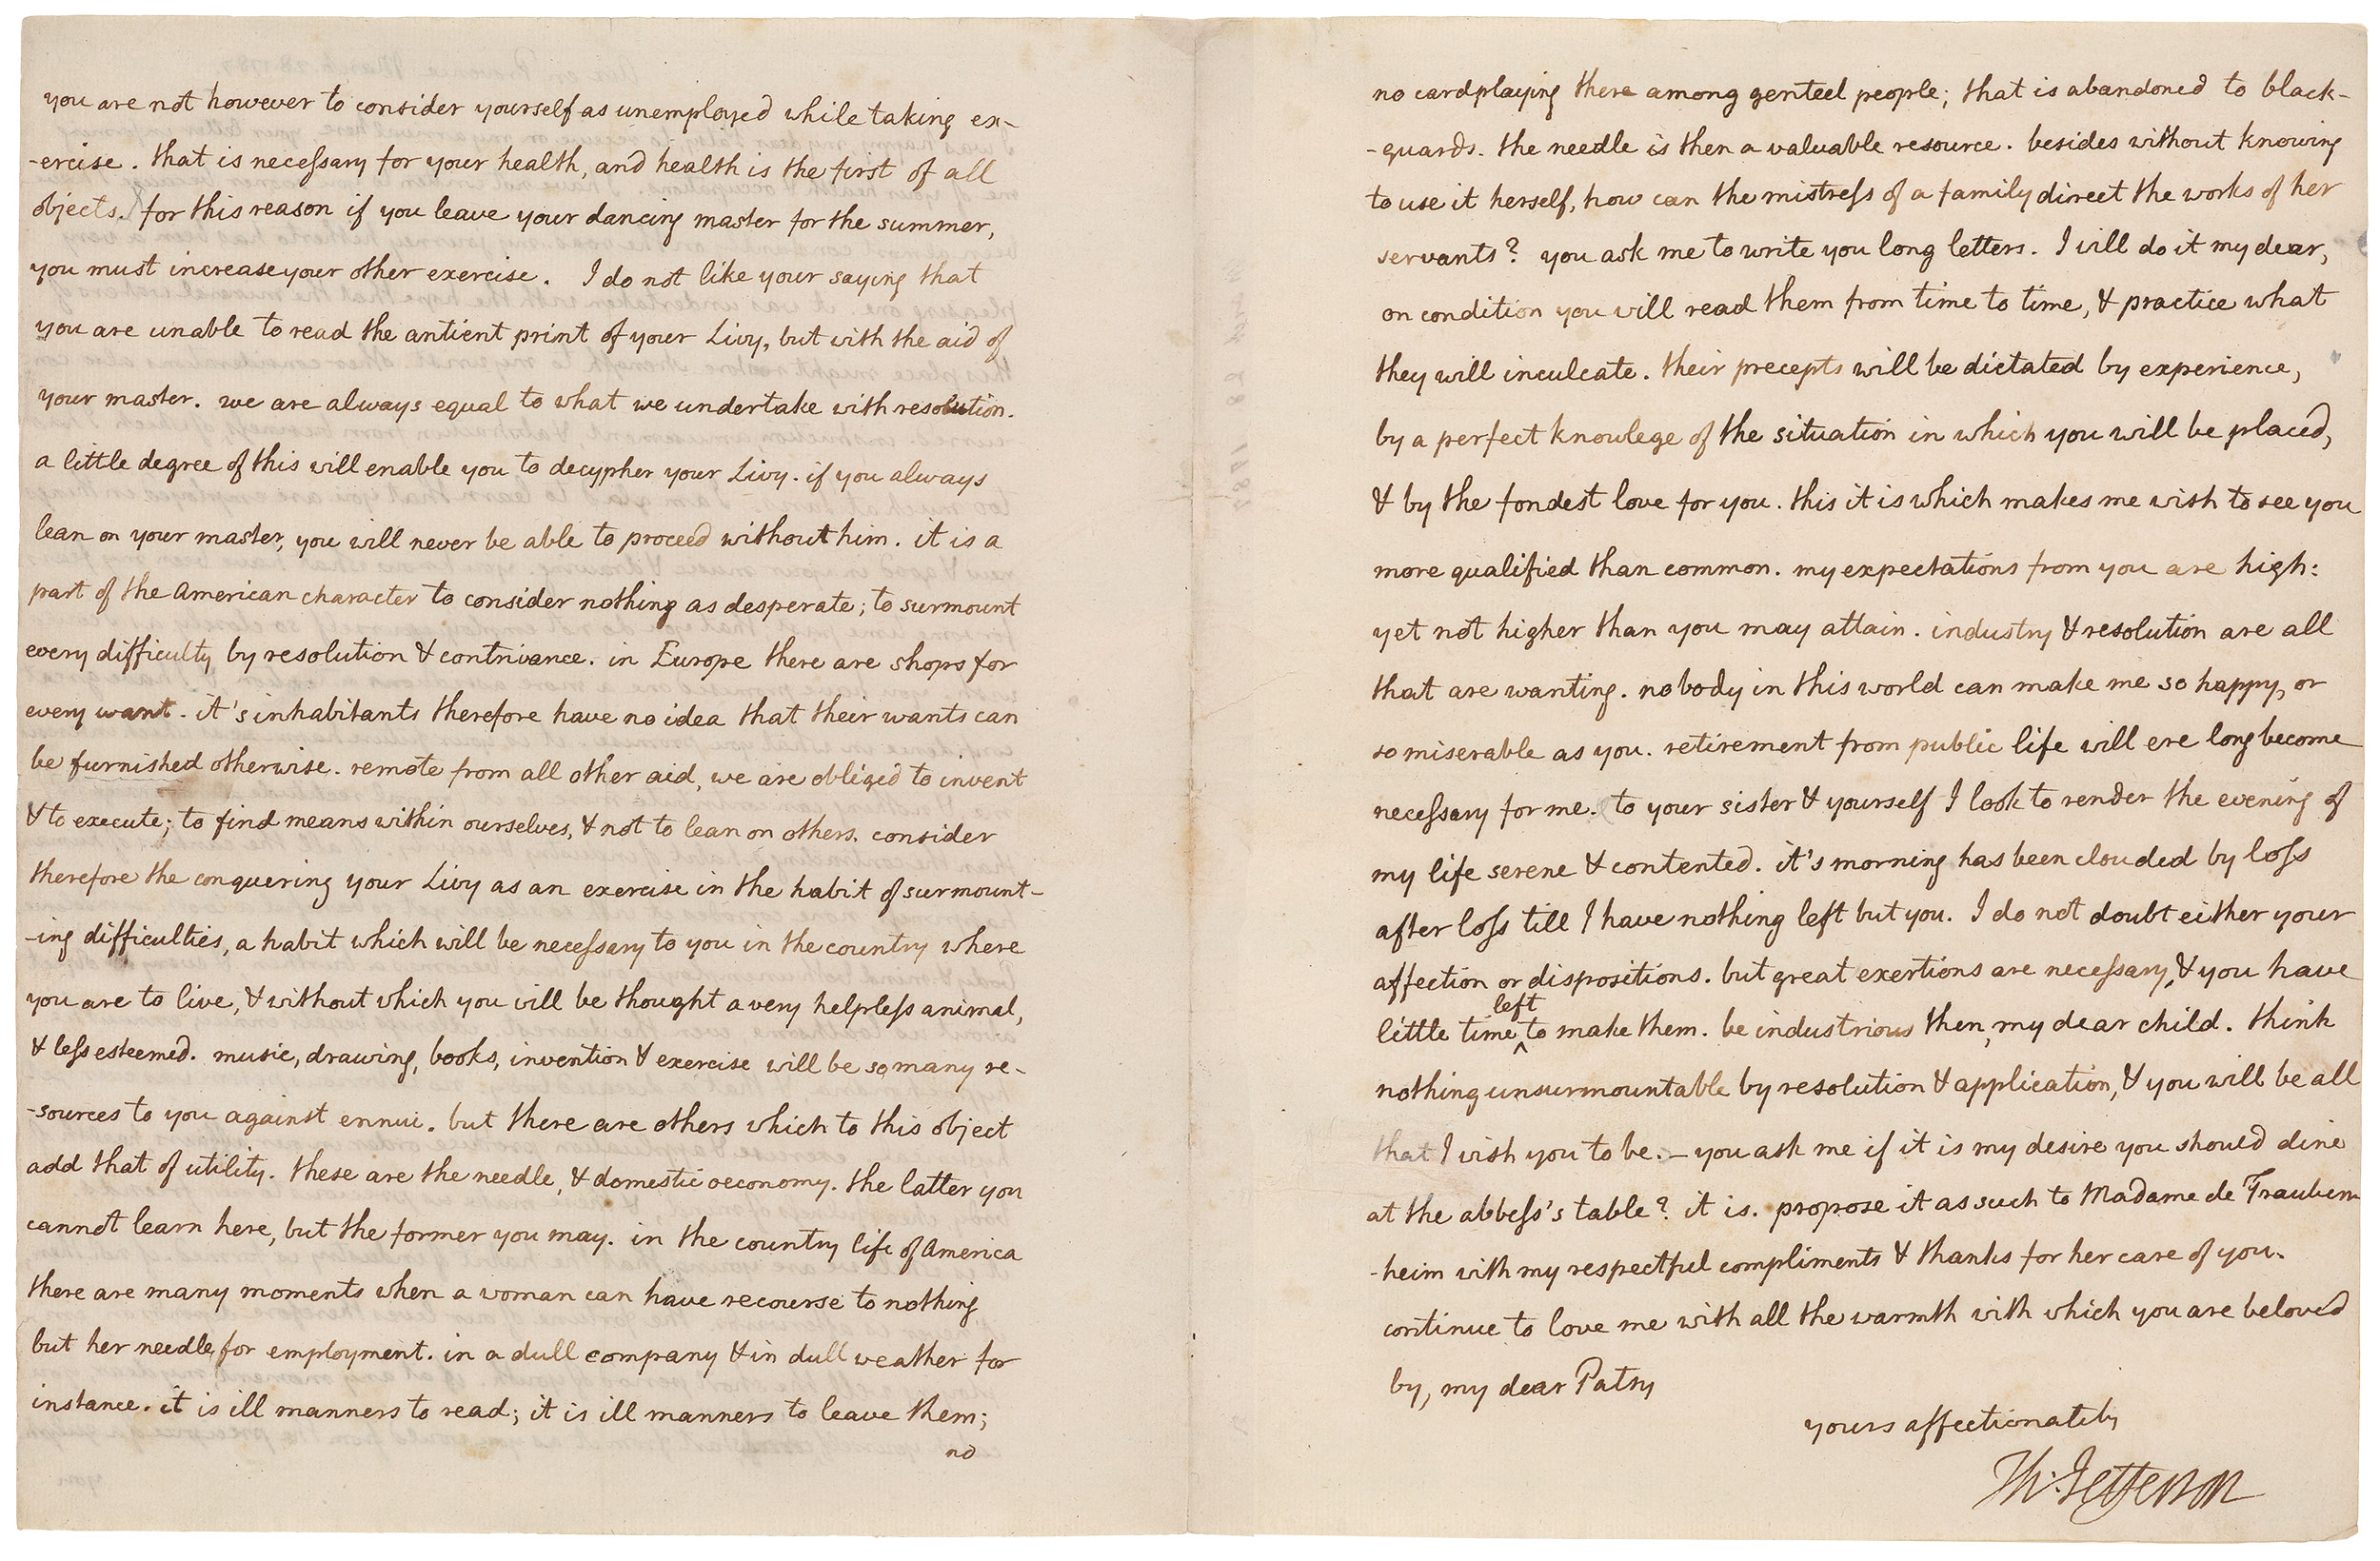 you are not however to consider yourself as unemployed while taking ex-
-ercise. that is necessary for your health, and health is the first of all
objects. for this reason if you leave your dancing master for the summer,
you must increase your other exercise. I do not like your saying that
you are unable to read the antient print of your Livy, but with the aid of
your master. we are always equal to what we undertake with resolution.
a little degree of this will enable you to decypher your Livy. if you always
lean on your master, you will never be able to proceed without him. it is a
part of the American character to consider nothing as desperate; to surmount
every difficulty by resolution & contrivance. in Europe there are shops for
every want. it's inhabitants therefore have no idea that their wants can
be furnished otherwise. remote from all other aid, we are obliged to invent
& to execute; to find means within ourselves, & not to lean on others. consider
therefore the conquering your Livy as an exercise in the habit of surmount-
-ing difficulties, a habit which will be necessary to you in the country where
you are to live, & without which you will be thought a very helpless animal,
& less esteemed. music, drawing, books, invention & exercise will be so many re-
-sources to you against ennui. but there are others which to this object
add that of utility. these are the needle, & domestic oeconomy. the latter you
cannot learn here, but the former you may. in the country life of America
there are many moments when a woman can have recourse to nothing
but her needle for employment. in a dull company & in dull weather for
instance. it is ill manners to read; it is ill manners to leave them;
no
no cardplaying there among genteel people; that is abandoned to black-
-guards. the needle is then a valuable resource. besides without knowing
to use it herself, how can the mistress of a family direct the works of her
servants? you ask me to write you long letters. I will do it my dear,
on condition you will read them from time to time, & practice what
they will inculcate. their precepts will be dictated by experience,
by a perfect knowlege of the situation in which you will be placed,
& by the fondest love for you. this it is which makes me wish to see you
more qualified than common. my expectations from you are high:
yet not higher than you may attain. industry & resolution are all
that are wanting. nobody in this world can make me so happy, or
so miserable as you. retirement from public life will ere long become
necessary for me. to your sister & yourself I look to render the evening of
my life serene & contented. it's morning has been clouded by loss
after loss till I have nothing left but you. I do not doubt either your
affection or dispositions. but great exertions are necessary, & you have
little time left to make them. be industrious then, my dear child. think
nothing unsurmountable by resolution & application, & you will be all
that I wish you to be. - you ask me if it is my desire you should dine
at the abbess's table? it is. propose it as such to Madame de Trauben-
-heim with my respectful compliments & thanks for her care of you.
continue to love me with all the warmth with which you are beloved
by, my dear Patsy
yours affectionately
Th: Jefferson